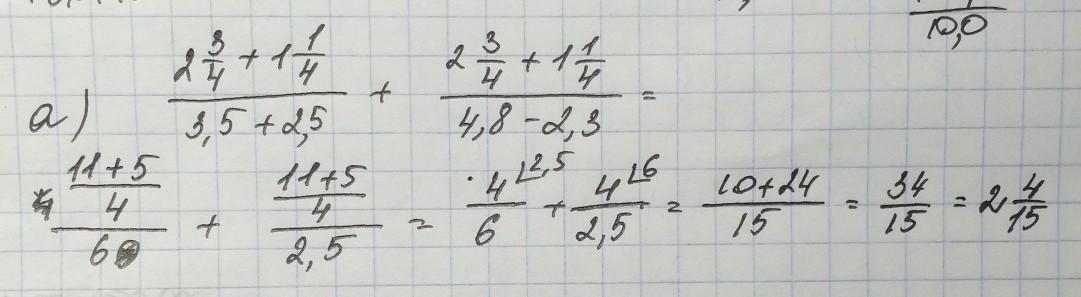 10,0
а) (2 3/4 + 1 1/4)/(3,5 + 2,5) + (2 3/4 + 1 1/4)/(4,8 - 2,3) =
((11+5)/4)/6 + ((11+5)/4)/2,5 = 4⌊2,5/6 + 4⌊6/2,5 = (10+24)/15 = 34/15 = 2 4/15